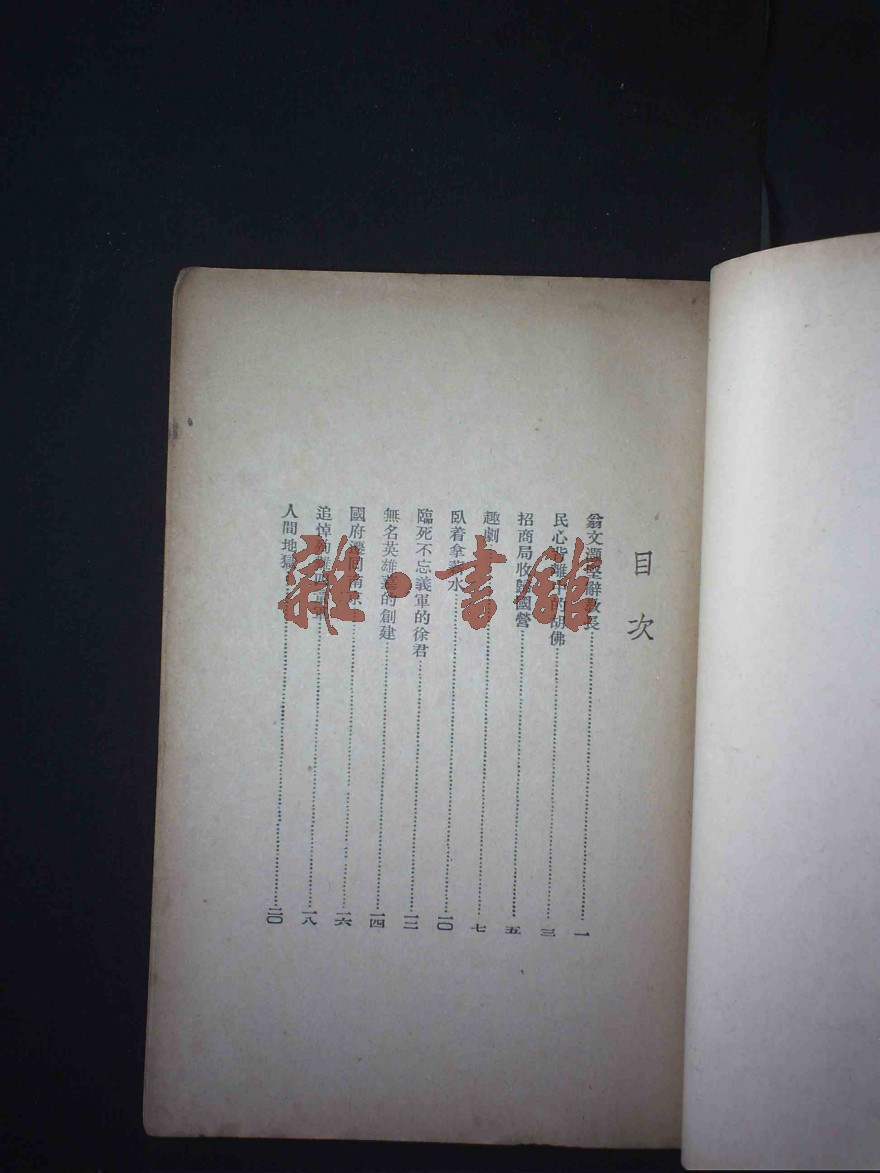 目次
翁文灝堅辭教長……一
民心背離中的胡佛……三
招商局收歸國營……五
趣劇……七
臥着拿薪水……一〇
臨死不忘義軍的徐君……一二
無名英雄墓的創建……一四
國府遷回南京……一六
追悼殉難……一八
人間地獄……二〇
雜·書館